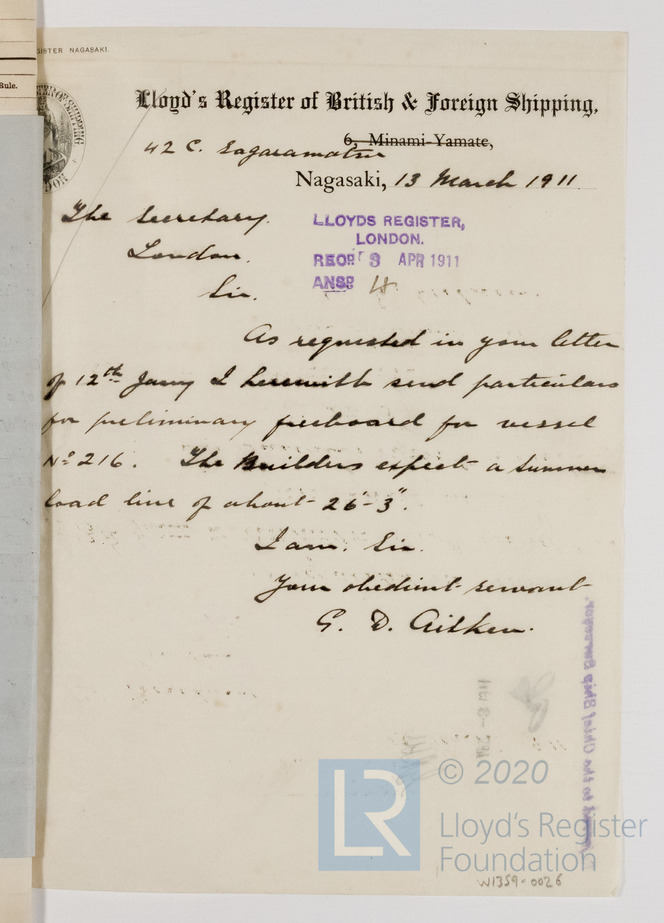 GISTER NAGASAKI.
Rule.
Lloyd's Register of British & Foreign Shipping,
6, Minami-Yamate,
42 C. Sagaramatsu
Nagasaki, 13 March 1911.
The Secretary.
London.
LLOYDS REGISTER,
LONDON.
RECD 3 APR 1911
ANSD
Sir.
As requested in your letter
of 12th Jany I herewith send particulars
for preliminary freeboard for vessel
No 216. The Builders expect a summer
load line of about 26'-3".
I am, Sir.
Your obedient servant
G. D. Aitken.
to the Chief Ship Surveyor.
LR
© 2020
Lloyd's Register
Foundation
W1359-0026